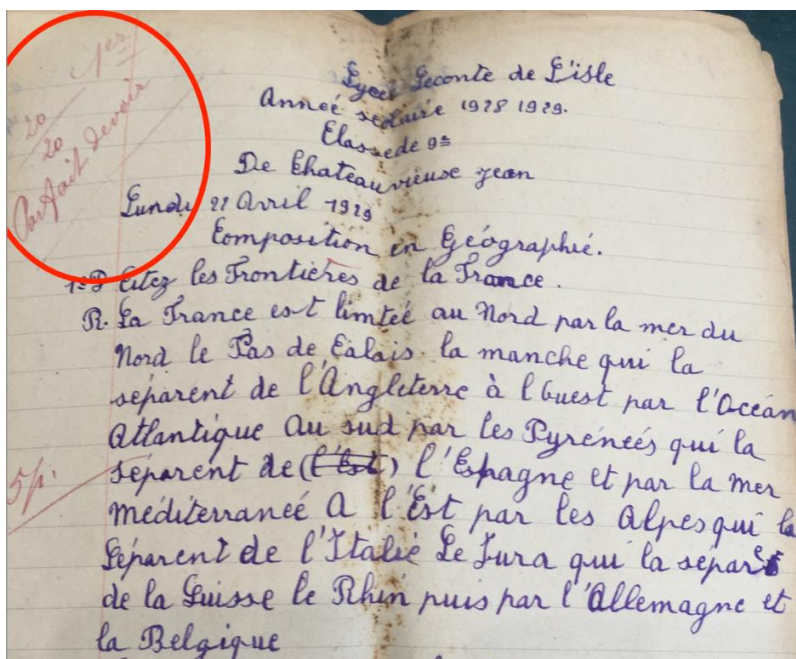 1er
20
20
Parfait devoir
Lycée Leconte de L'isle
Anneé scolaire 1928 1929.
Classe de 9e
De Chateauvieuse Jean
Lundi 22 Avril 1929
Composition en Géographié.
1e D Citez les Frontières de la France.
R. La France est limteé au Nord par la mer du
Nord le Pas de Calais la manche qui la
séparent de l'Angleterre à l'Ouest par l'Océan
Atlantique Au sud par les Pyréneés qui la
séparent de (l'Est) l'Espagne et par la mer
5p.
méditerraneé A l'Est par les Alpes qui la
Séparent de l'Italié Le Jura qui la sépare
de la Suisse le Rhin puis par l'Allemagne et
la Belgique